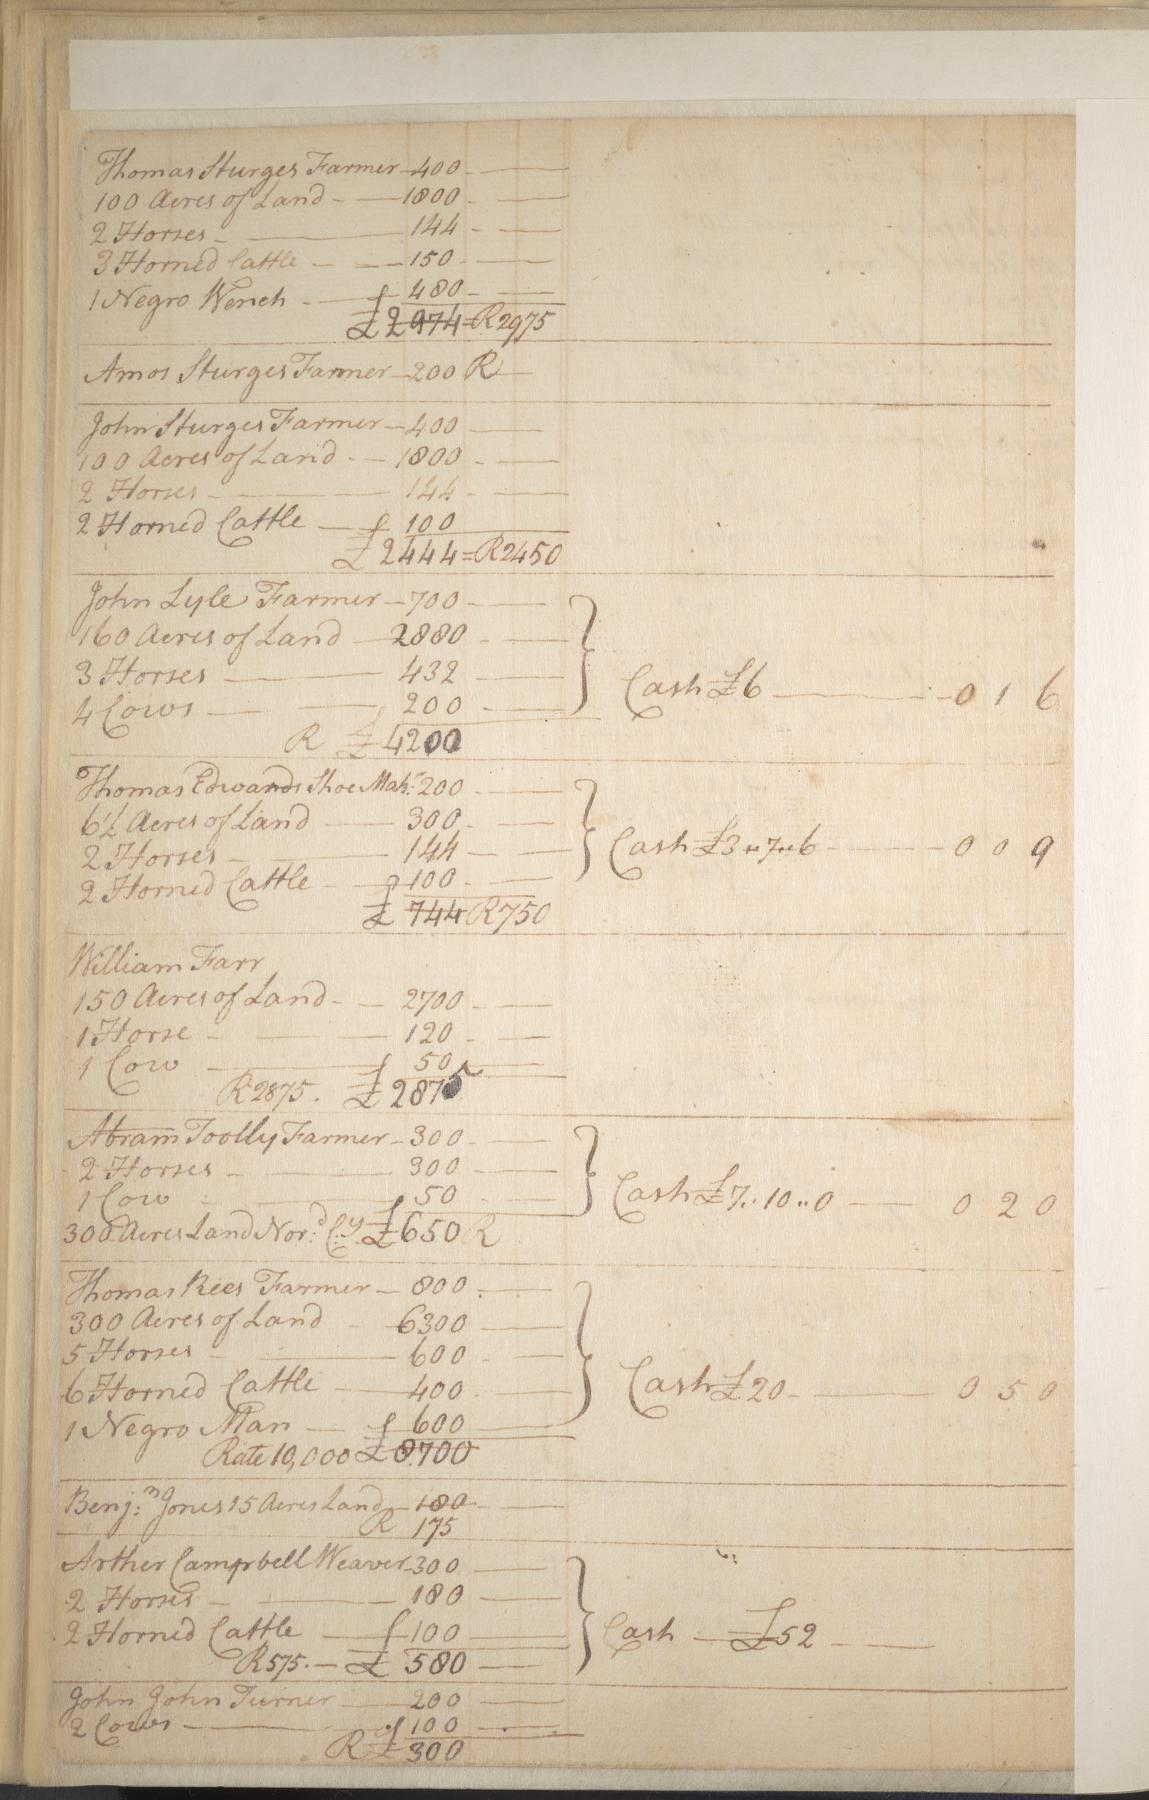 Thomas Sturges Farmer 400
100 Acres of Land 1800
2 Horses 144
3 Horned Cattle 150
1 Negro Wench 480
£ 2974 R2975
Amos Sturges Farmer 200 R
John Sturges Farmer 400
100 Acres of Land 1800
2 Horses 144
2 Horned Cattle 100
£ 2444 = R2450
John Lyle Farmer 700
160 Acres of Land 2880
3 Horses 432
4 Cows 200
Cash £6 0 1 6
R £ 4200
Thomas Edwards Shoe Makr. 200
Acres of Land 300
2 Horses 144
2 Horned Cattle 100
Cash £3 " 7 " 6 0 0 9
£ 744 R750
William Farr
150 Acres of Land 2700
1 Horse 120
1 Cow 50
R 2875. £ 2875
Abram Toolly Farmer 300
2 Horses 300
1 Cow 50
Cash £7 .. 10 .. 0 0 2 0
300 Acres Land Nord. Cy. £ 650 R
Thomas Rees Farmer 800
300 Acres of Land 6300
5 Horses 600
6 Horned Cattle 400
1 Negro Man 600
Cash £20 0 5 0
Rate 10,000 £ 8700
Benj:n Jones 15 Acres Land 180
R 175
Arther Campbell Weaver 300
2 Horses 180
2 Horned Cattle 100
Cash £52
R 575. £ 580
John John Turner 200
2 Cows 100
R £ 300